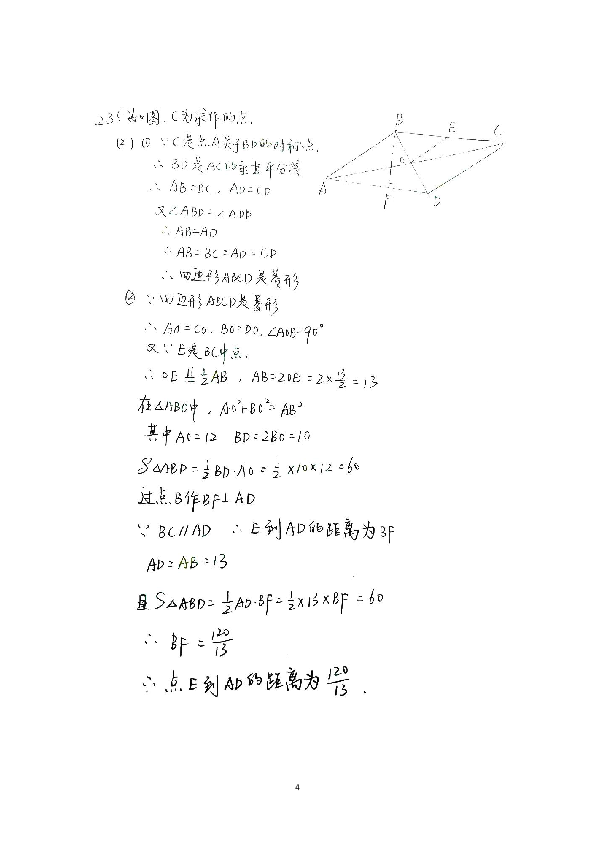 23(1)如图，C为求作的点.
(2) ① ∵C是点A关于BD的对称点.
∴ BD是AC的垂直平分线
∴ AB=BC，AD=CD
又∠ABD=∠ADB
∴AB=AD
∴AB=BC=AD=CD
∴四边形ABCD是菱形
② ∵四边形ABCD是菱形
∴ AO=CO，BO=DO，∠AOB=90°
又∵E是BC中点，
∴OE ∥= 1/2 AB，AB=2OE=2×13/2=13
在△ABO中，AO²+BO²=AB²
其中AO=12 BD=2BO=10
S△ABD=1/2 BD·AO=1/2×10×12=60
过点B作BF⊥AD
∵ BC∥AD ∴E到AD的距离为BF
AD=AB=13
且S△ABD=1/2 AD·BF=1/2×13×BF=60
∴ BF=120/13
∴点E到AD的距离为120/13.
B
E
C
O
A
F
D
4